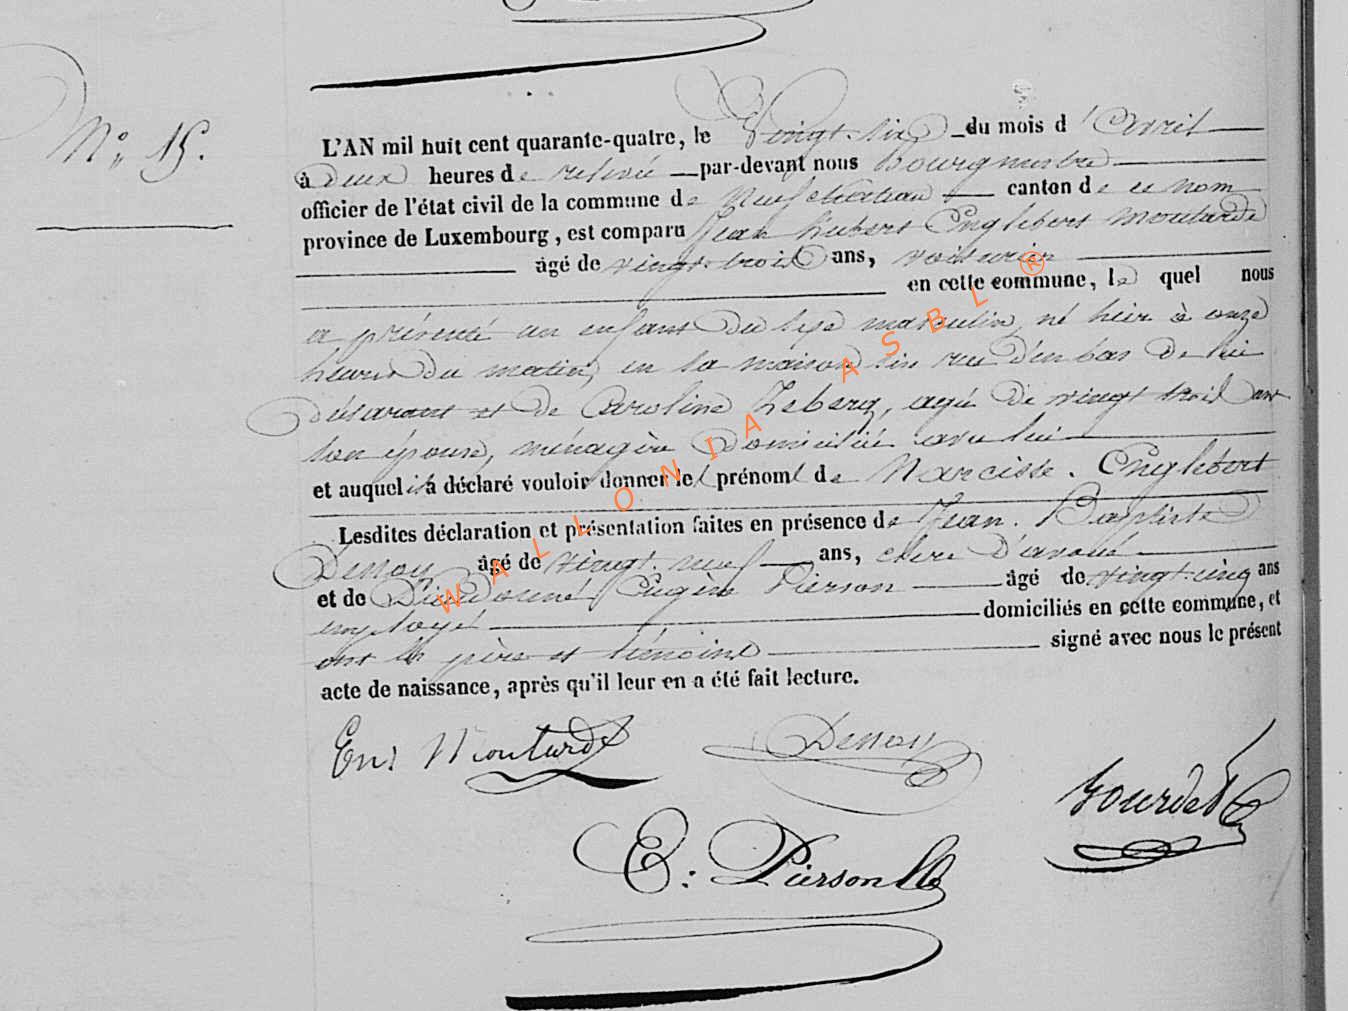 N° 15.
L'AN mil huit cent quarante-quatre, le Vingt-six du mois d'avril
à Deux heures de relevée par-devant nous Bourgmestre
officier de l'état civil de la commune de Neufchateau canton de ce nom
province de Luxembourg, est comparu Jean hubert Englebert Moutarde
âgé de vingt-trois ans, voiturier
en cette commune, le quel nous
a présenté un enfant du sexe masculin, né hier à onze
heures du matin, en sa maison sise rue d'en bas de lui
déclarant et de Caroline agée de vingt trois ans
son épouse, ménagère domiciliée avec lui
et auquel il a déclaré vouloir donner le prénom de Narcisse. Englebert
Lesdites déclaration et présentation faites en présence de Jean. Baptiste
Denoy âgé de vingt-neuf ans, clerc d'avoué
et de Dieudonné Eugène Pierson âgé de vingt-cinq ans
employé domiciliés en cette commune, et
ont le père et témoins signé avec nous le présent
acte de naissance, après qu'il leur en a été fait lecture.
Moutarde
Denoy
E: Pierson
WALLONIA ASBL ®